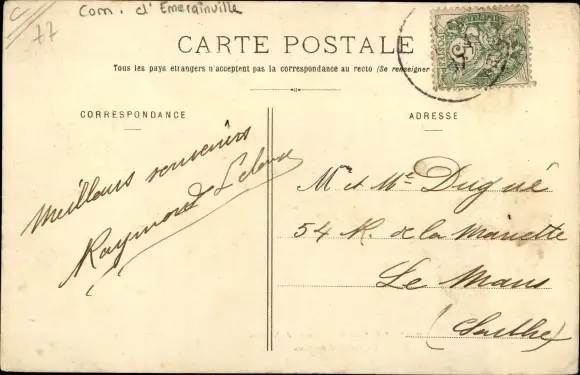 Com. d'Emerainville
77
CARTE POSTALE
Tous les pays étrangers n'acceptent pas la correspondance au recto (Se renseigner
CORRESPONDANCE
ADRESSE
Meilleurs souvenirs
Raymond
Mr et Me Dugué
54 R. de la Mariette
Le Mans
(Sarthe)